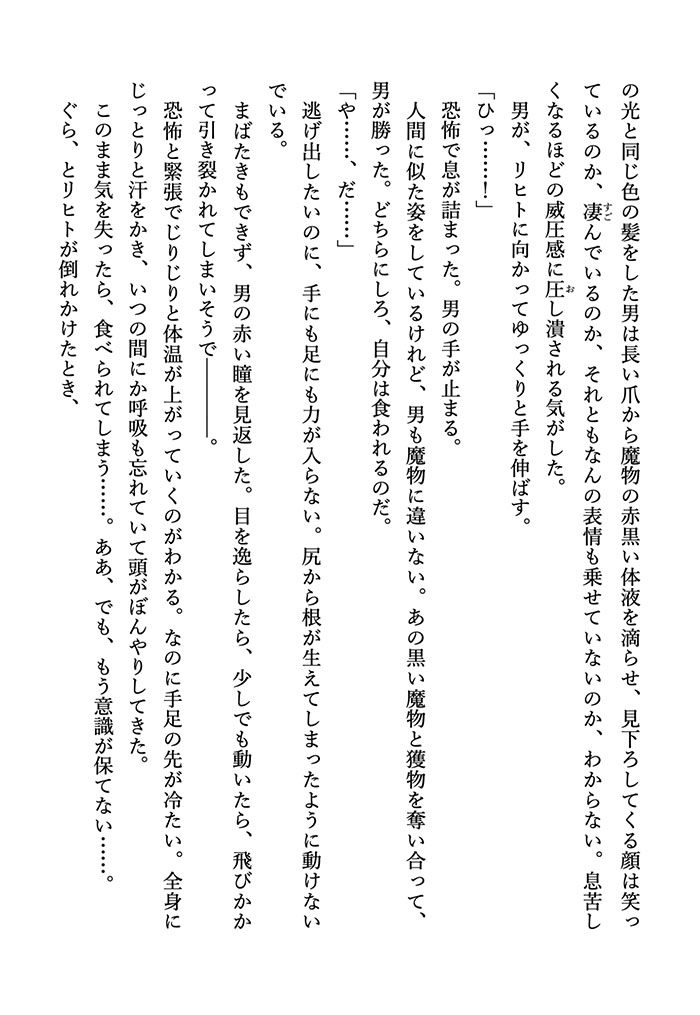 の光と同じ色の髪をした男は長い爪から魔物の赤黒い体液を滴らせ、見下ろしてくる顔は笑っ
ているのか、凄んでいるのか、それともなんの表情も乗せていないのか、わからない。息苦し
くなるほどの威圧感に圧し潰される気がした。
男が、リヒトに向かってゆっくりと手を伸ばす。
「ひっ……！」
恐怖で息が詰まった。男の手が止まる。
人間に似た姿をしているけれど、男も魔物に違いない。あの黒い魔物と獲物を奪い合って、
男が勝った。どちらにしろ、自分は食われるのだ。
「や……、だ……」
逃げ出したいのに、手にも足にも力が入らない。尻から根が生えてしまったように動けない
でいる。
まばたきもできず、男の赤い瞳を見返した。目を逸らしたら、少しでも動いたら、飛びかか
って引き裂かれてしまいそうで――――。
恐怖と緊張でじりじりと体温が上がっていくのがわかる。なのに手足の先が冷たい。全身に
じっとりと汗をかき、いつの間にか呼吸も忘れていて頭がぼんやりしてきた。
このまま気を失ったら、食べられてしまう……。ああ、でも、もう意識が保てない……。
ぐら、とリヒトが倒れかけたとき、